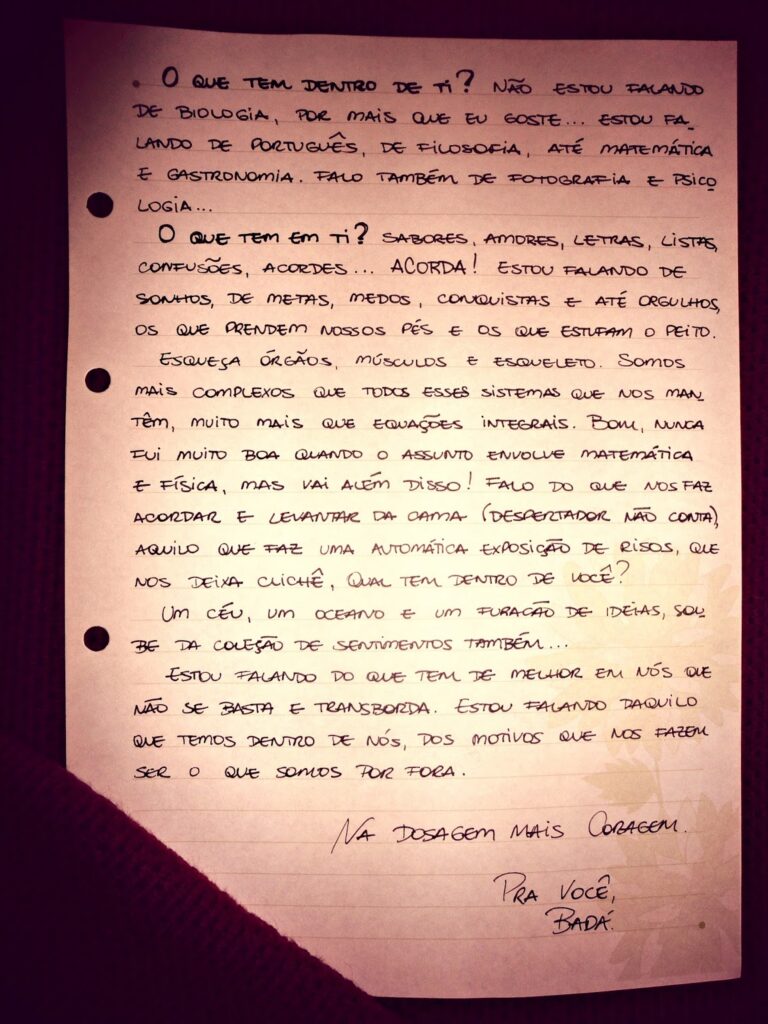 O QUE TEM DENTRO DE TI? NÃO ESTOU FALANDO
DE BIOLOGIA, POR MAIS QUE EU GOSTE... ESTOU FA_
LANDO DE PORTUGUÊS, DE FILOSOFIA, ATÉ MATEMÁTICA
E GASTRONOMIA. FALO TAMBÉM DE FOTOGRAFIA E PSICO
LOGIA...
O QUE TEM EM TI? SABORES, AMORES, LETRAS, LISTAS,
CONFUSÕES, ACORDES... ACORDA! ESTOU FALANDO DE
SONHOS, DE METAS, MEDOS, CONQUISTAS E ATÉ ORGULHOS,
OS QUE PRENDEM NOSSOS PÉS E OS QUE ESTUFAM O PEITO.
ESQUEÇA ÓRGÃOS, MÚSCULOS E ESQUELETO. SOMOS
MAIS COMPLEXOS QUE TODOS ESSES SISTEMAS QUE NOS MAN_
TÊM, MUITO MAIS QUE EQUAÇÕES INTEGRAIS. BOM, NUNCA
FUI MUITO BOA QUANDO O ASSUNTO ENVOLVE MATEMÁTICA
E FÍSICA, MAS VAI ALÉM DISSO! FALO DO QUE NOS FAZ
ACORDAR E LEVANTAR DA CAMA (DESPERTADOR NÃO CONTA),
AQUILO QUE FAZ UMA AUTOMÁTICA EXPOSIÇÃO DE RISOS, QUE
NOS DEIXA CLICHÊ, QUAL TEM DENTRO DE VOCÊ?
UM CÉU, UM OCEANO E UM FURACÃO DE IDEIAS, SOU_
BE DA COLEÇÃO DE SENTIMENTOS TAMBÉM...
ESTOU FALANDO DO QUE TEM DE MELHOR EM NÓS QUE
NÃO SE BASTA E TRANSBORDA. ESTOU FALANDO DAQUILO
QUE TEMOS DENTRO DE NÓS, DOS MOTIVOS QUE NOS FAZEM
SER O QUE SOMOS POR FORA.
NA DOSAGEM MAIS CORAGEM.
PRA VOCÊ,
BADÁ.